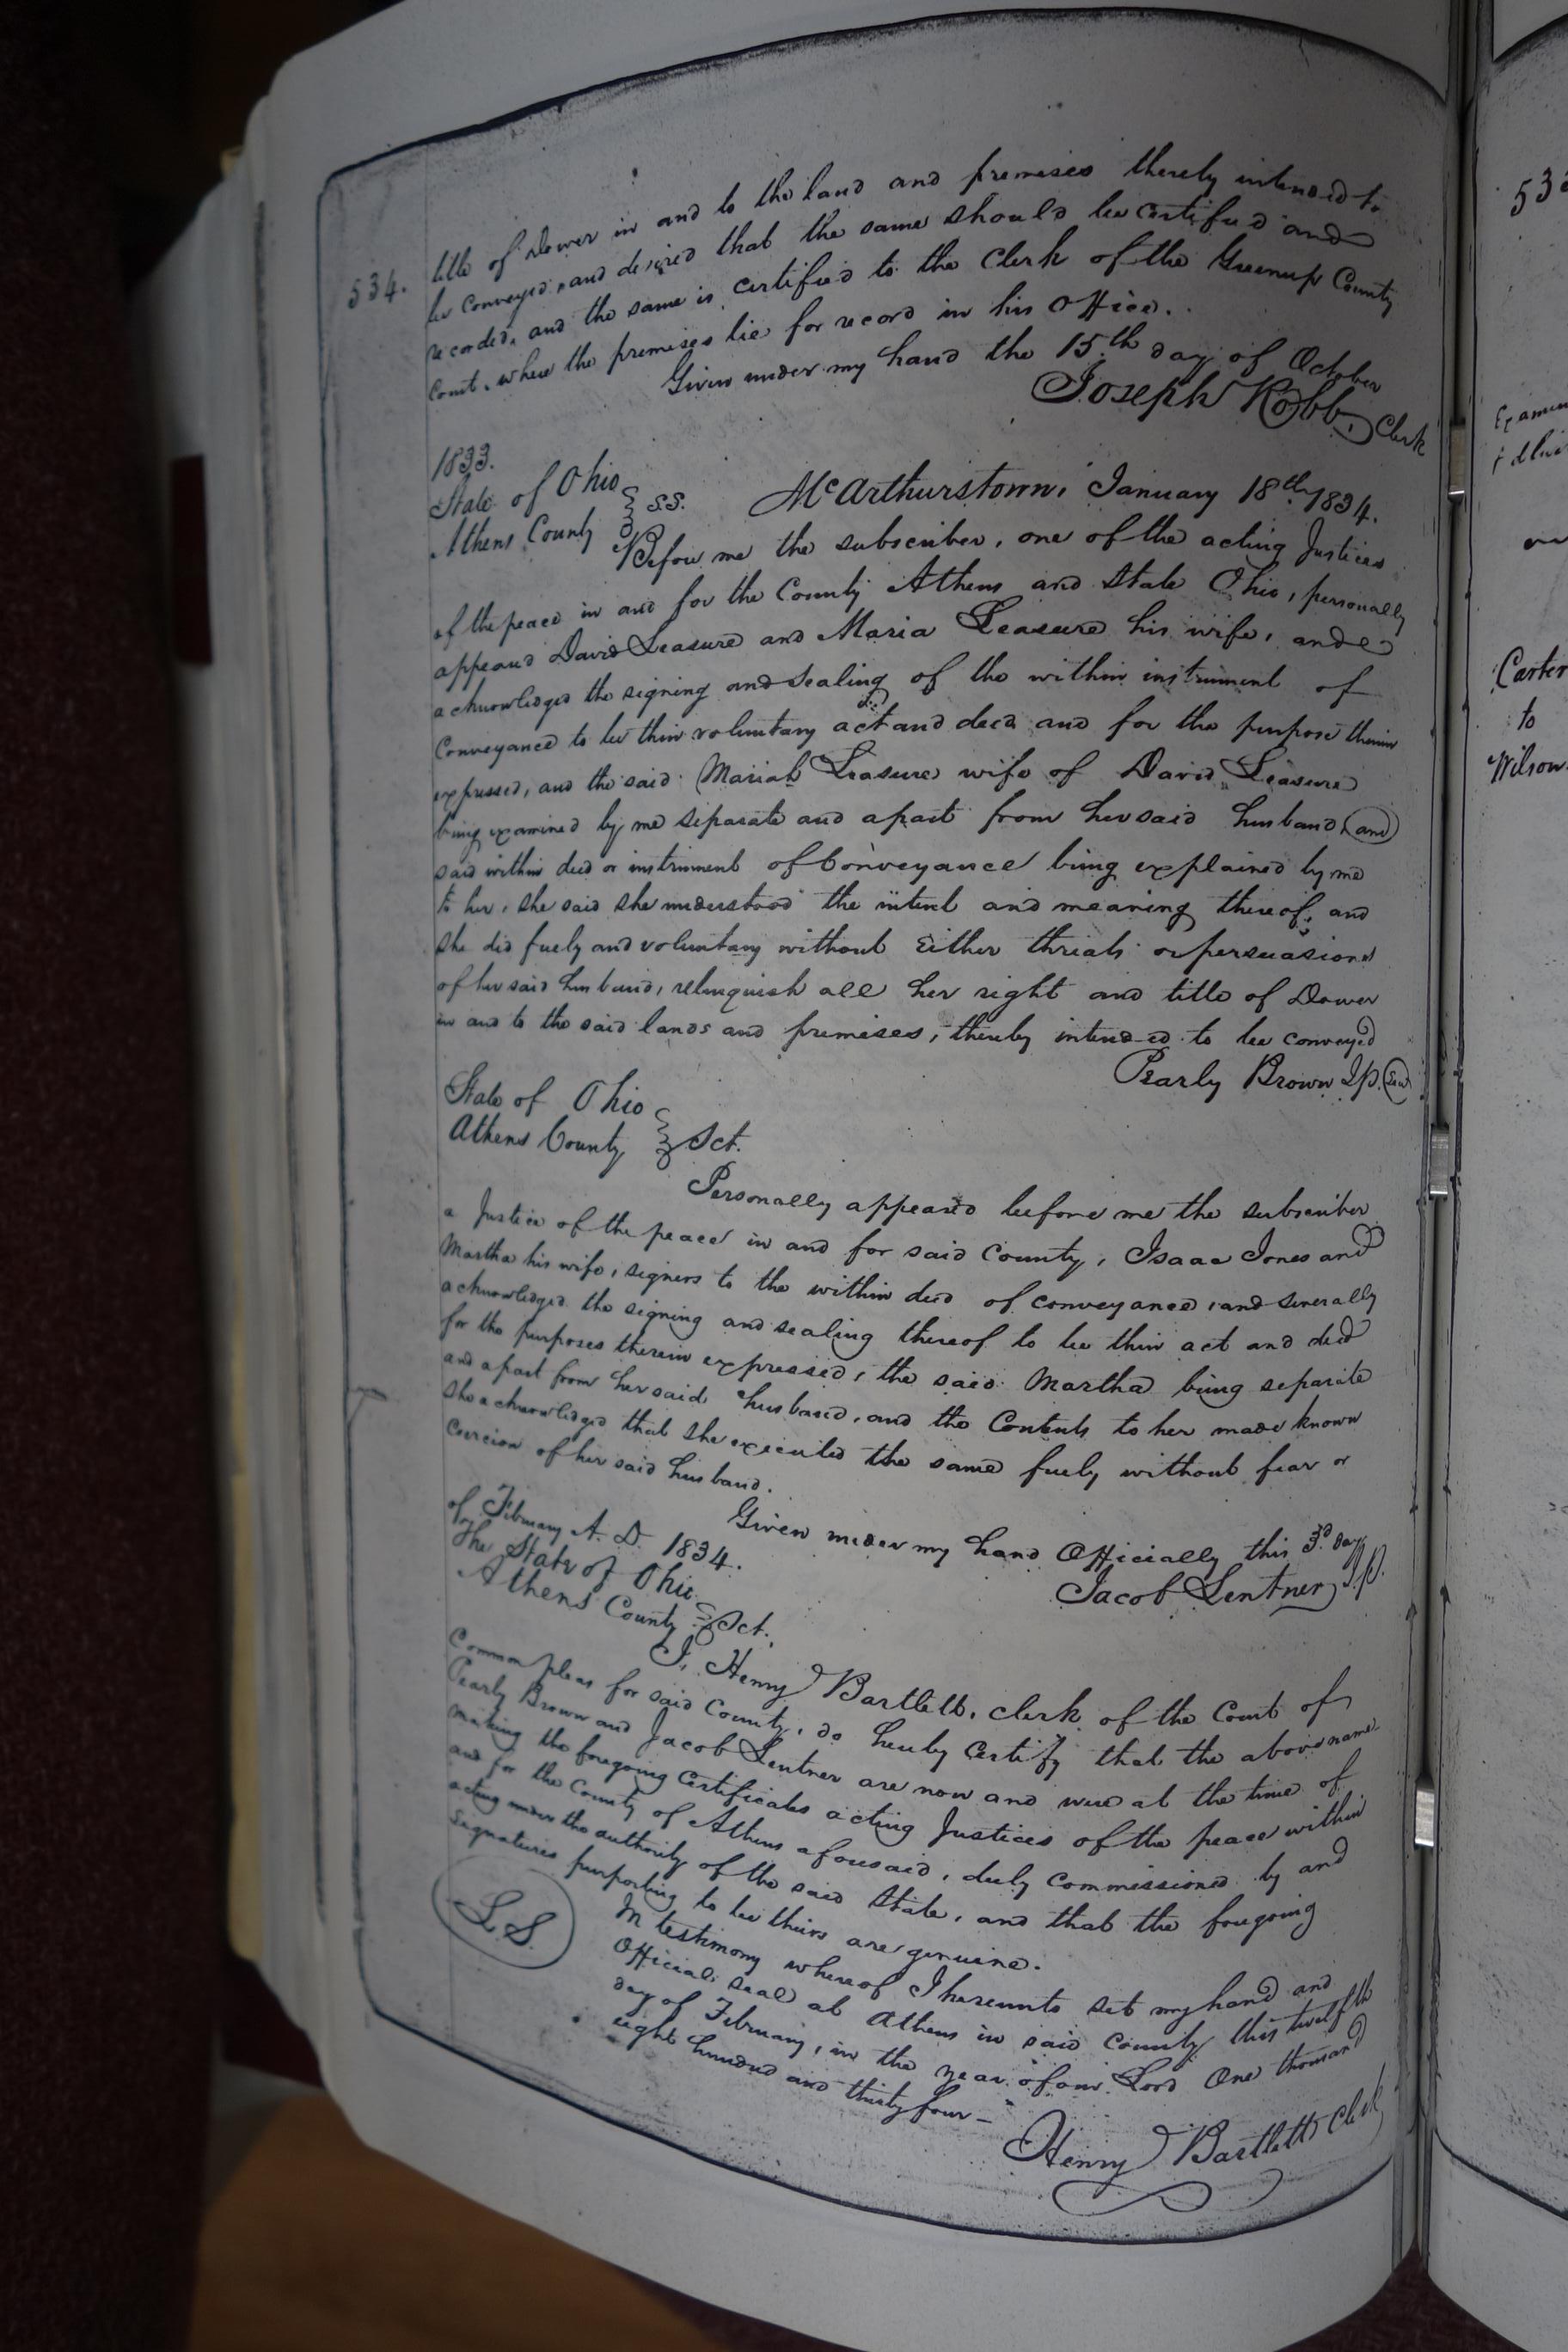 534.
title of Dower in and to the land and premises thereby intended to
be Conveyed, and desired that the same should be certified and
recorded, and the same is certified to the Clerk of the Greenup County
Court, where the premises lie for record in his Office.
Given under my hand the 15th day of October
1833.
Joseph Robb, Clerk
State of Ohio
Athens County } S.S. McArthurstown, January 18th 1834.
Before me the subscriber, one of the acting Justices
of the peace in and for the County Athens and State Ohio, personally
appeard David Leasure and Maria Leasure his wife, and
acknowledged the signing and sealing of the within instrument of
Conveyance to be thier voluntary act and deed and for the purpose therein
expressed, and the said Mariah Leasure wife of David Leasure
being examined by me separate and apart from her said husband, and
said within deed or instrument of Conveyance being explained by me
to her, she said she understood the intent and meaning thereof, and
she did freely and voluntary without Either threats or persuasion
of her said husband, relinquish all her right and title of Dower
in and to the said lands and premises, thereby intended to be conveyed
Pearly Brown J.p. Seal
State of Ohio
Athens County } Sct.
Personally appeared before me the subscriber
a Justice of the peace in and for said County, Isaac Jones and
Martha his wife, signers to the within deed of conveyance, and severally
acknowledged the signing and sealing thereof to be thier act and deed
for the purposes therein expressed, the said Martha being separate
and apart from her said husband, and the Contents to her made known
she acknowledged that she executed the same freely without fear or
Coercion of her said husband.
Given under my hand Officially this 3d day
of February A. D. 1834.
Jacob Lentner J.p.
The State of Ohio
Athens County } Sct.
I, Henry Bartlett, clerk of the Court of
Common pleas for said County, do hereby Certify that the above name
Pearly Brown and Jacob Lentner are now and were at the time of
making the foregoing Certificates acting Justices of the peace within
and for the County of Athens aforesaid, duly commissioned by and
acting under the authority of the said State, and that the foregoing
signatures purporting to be theirs are genuine.
L.S.
In testimony whereof I hereunto set my hand and
Official seal at Athens in said County this twelfth
day of February, in the year of our Lord One thousand
eight hundred and thirty four -
Henry Bartlett Clerk
Carter
to
Wilson